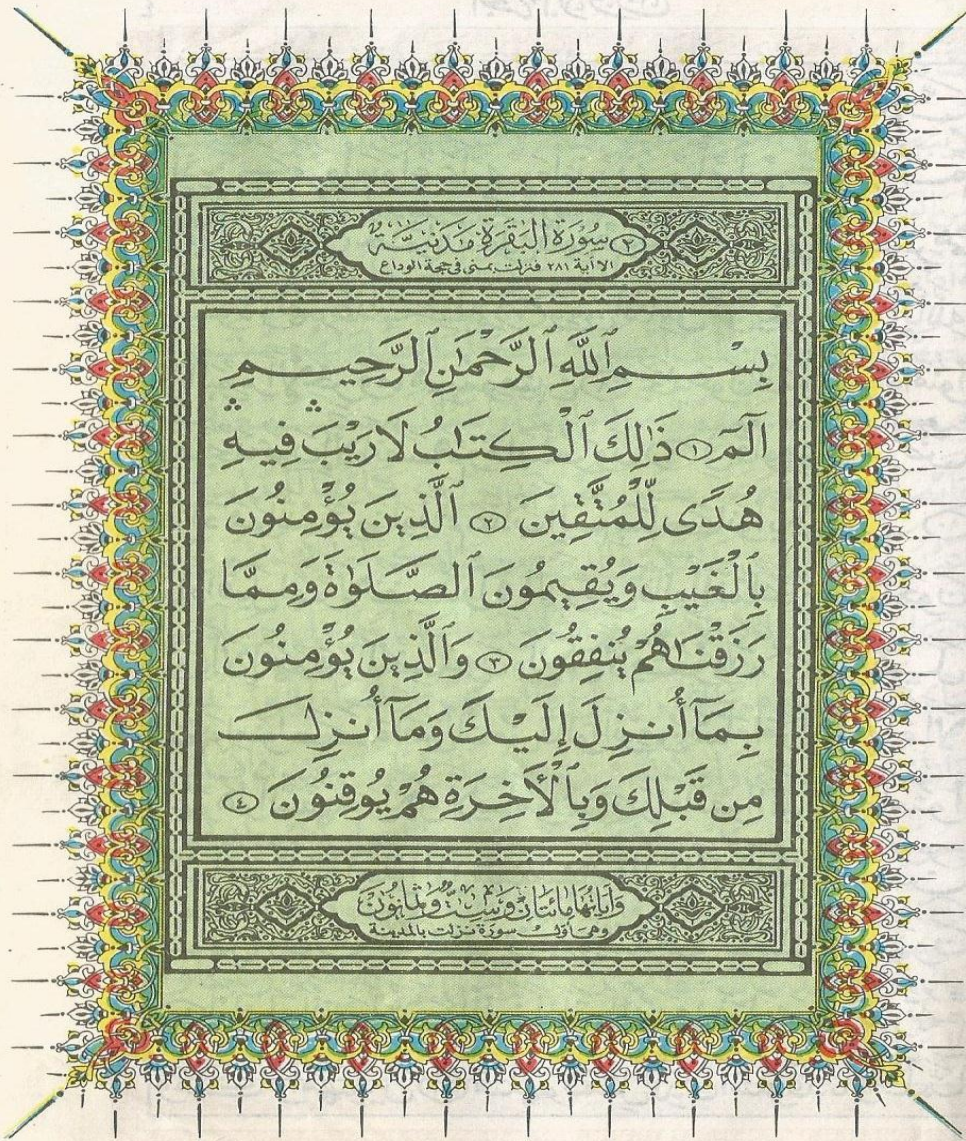 (٢) سُورَةُ الْبَقَرَةِ مَدَنِيَّةٌ
الا آية ٢٨١ فنزلت بمنى في حجة الوداع
بِسْمِ ٱللَّهِ ٱلرَّحْمَٰنِ ٱلرَّحِيمِ
الٓمٓ ١ ذَٰلِكَ ٱلْكِتَٰبُ لَا رَيْبَ ۛ فِيهِ ۛ
هُدًى لِّلْمُتَّقِينَ ٢ ٱلَّذِينَ يُؤْمِنُونَ
بِٱلْغَيْبِ وَيُقِيمُونَ ٱلصَّلَوٰةَ وَمِمَّا
رَزَقْنَٰهُمْ يُنفِقُونَ ٣ وَٱلَّذِينَ يُؤْمِنُونَ
بِمَآ أُنزِلَ إِلَيْكَ وَمَآ أُنزِلَ
مِن قَبْلِكَ وَبِٱلْأَخِرَةِ هُمْ يُوقِنُونَ ٤
وَآيَاتُهَا مِائَتَانِ وَسِتٌّ وَثَمَانُونَ
وهي أول سورة نزلت بالمدينة